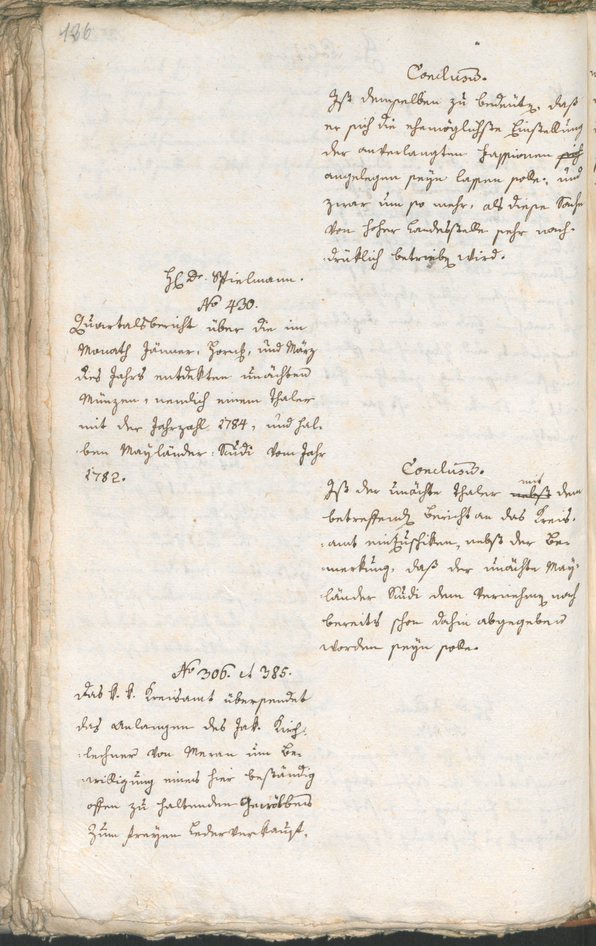 136
Conclusum.
Ist demselben zu bedeuten, daß
er sich die ehemöglichste Einstellung
der anverlangten Fassionen sich
angelegen seyn lassen solle, und
zwar um so mehr, als diese Sache
von hoher Landesstelle sehr nach-
drüklich betrieben wird.
H. Dr. Spielmann.
No 430.
Quartalsbericht über die im
Monath Jänner, Hornung, und März
dies Jahrs entdekten unächten
Münzen, nemlich einem Thaler
mit der Jahrzahl 1784, und hal-
ben Mayländer Scudi vom Jahr
1782.
Conclusum.
Ist der unächte Thaler nebst mit dem
betreffenden Bericht an das Kreis-
amt einzuschiken, nebst der Be-
merkung, daß der unächte May-
länder Scudi dem Vernehmen nach
bereits schon dahin abgegeben
worden seyn solle.
No 306. et 385.
Das k. k. Kreisamt übersendet
das Anlangen des Jak. Kirch-
lechner von Meran um Be-
willigung eines hier beständig
offen zu haltenden Gewölbens
zum freyen Lederverkauf.